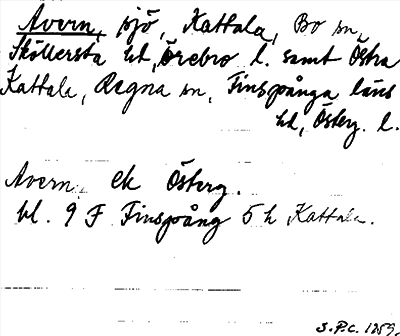 Avern, sjö, Kattala, Bo sn,
Sköllersta hd, Örebro l. samt Östra
Kattala, Regna sn, Finspånga läns
hd, Österg. l.
Avern ek Österg.
bl. 9 F Finspång 5 h Kattala.
S.P.C. 1259.